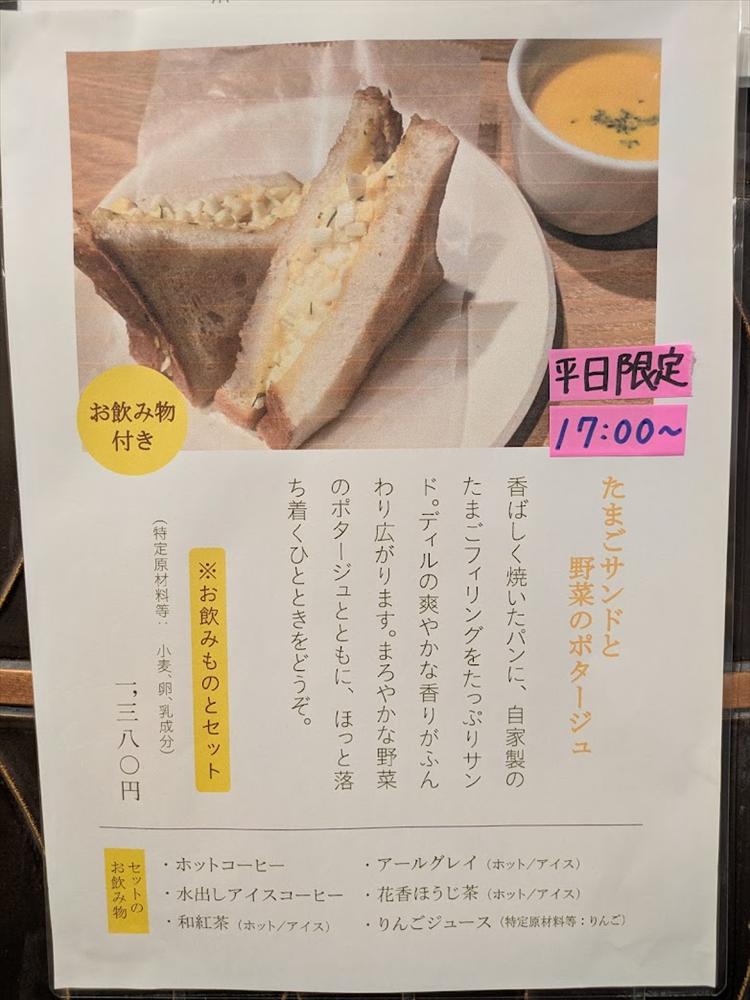 お飲み物
付き
平日限定
17:00~
たまごサンドと
野菜のポタージュ
香ばしく焼いたパンに、自家製の
たまごフィリングをたっぷりサン
ド。ディルの爽やかな香りがふん
わり広がります。まろやかな野菜
のポタージュとともに、ほっと落
ち着くひとときをどうぞ。
※お飲みものとセット
(特定原材料等: 小麦、卵、乳成分)
一,三八〇円
セットの
お飲み物
・ホットコーヒー
・水出しアイスコーヒー
・和紅茶(ホット/アイス)
・アールグレイ(ホット/アイス)
・花香ほうじ茶(ホット/アイス)
・りんごジュース(特定原材料等:りんご)